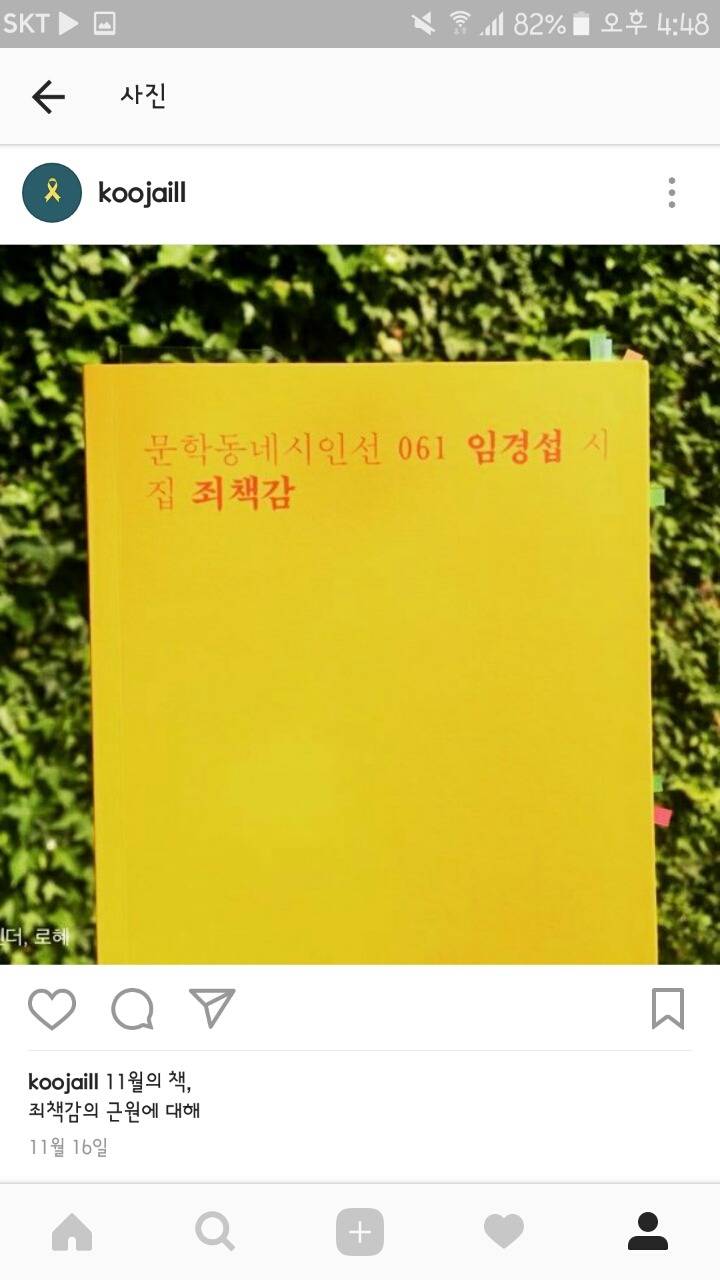 SKT 82% 오후 4:48
사진
koojaill
문학동네시인선 061 임경섭 시
집 죄책감
로혜
koojaill 11월의 책,
죄책감의 근원에 대해
11월 16일